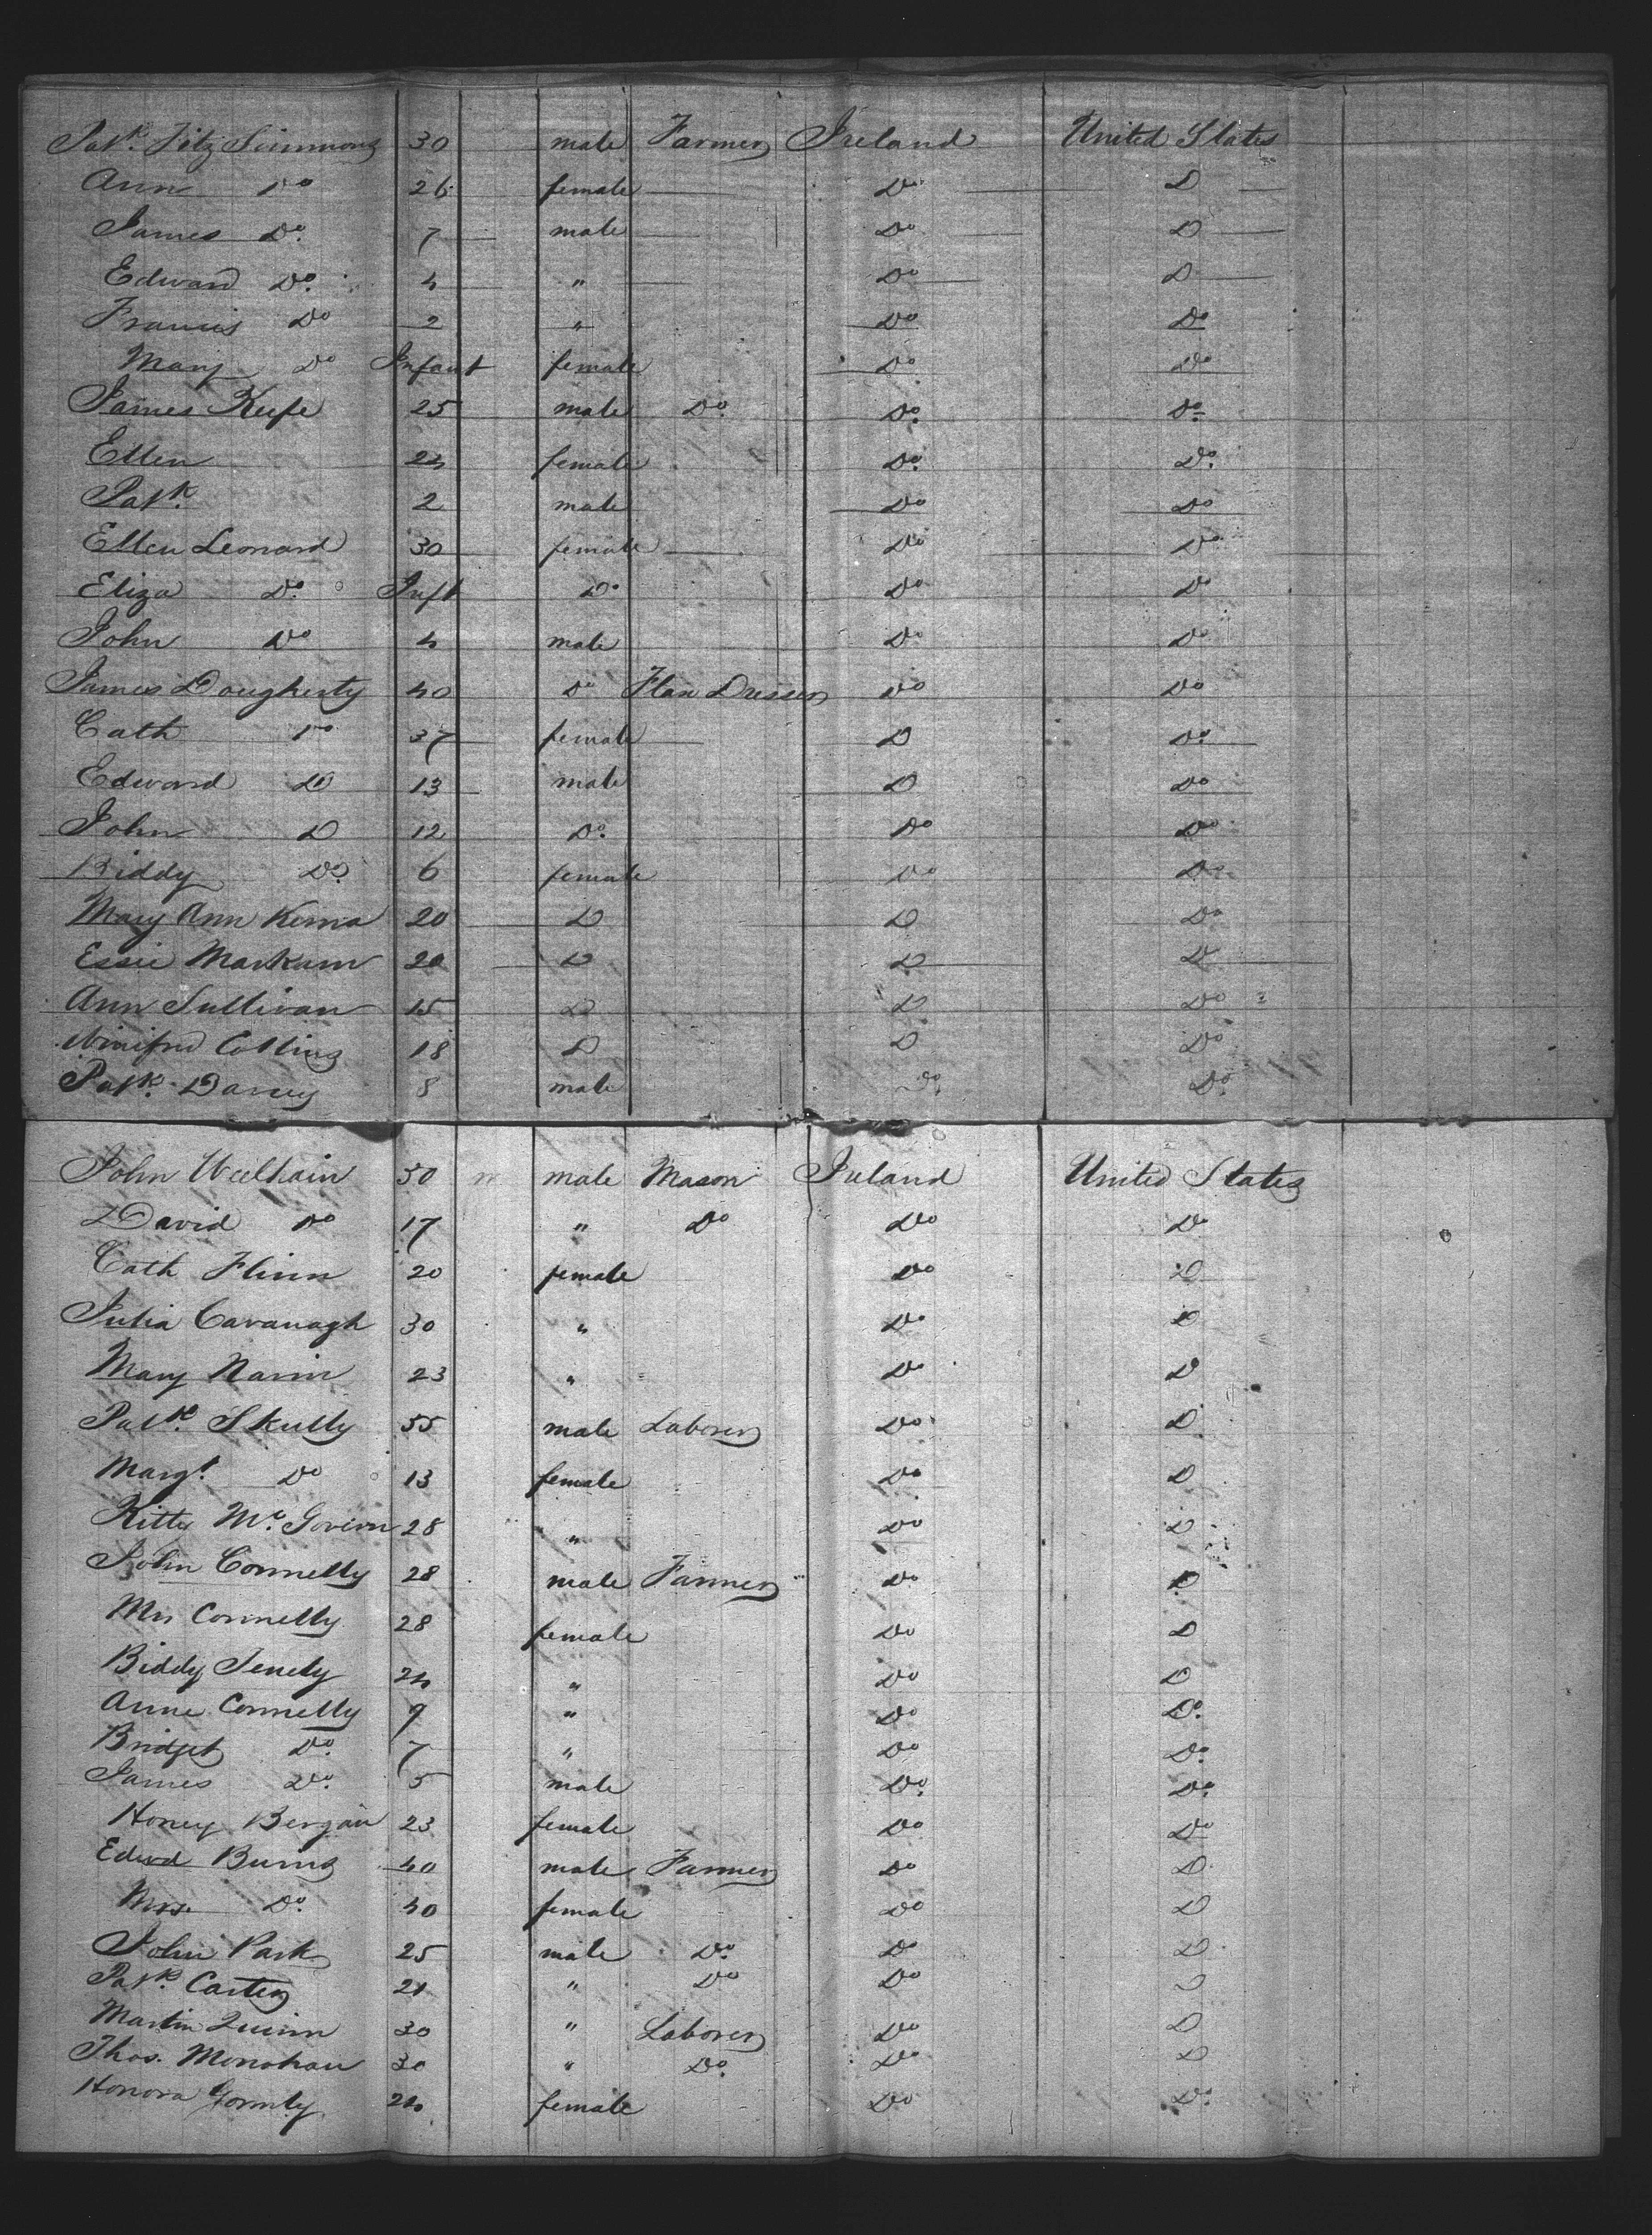 Patk. Fitz Simmons 30 male Farmer Ireland United States
Ann Do 26 female Do D
James Do. 7 male Do D
Edward Do. 4 " Do D
Francis Do 2 " Do Do
Mary Do Infant female Do Do
James Keefe 25 male Do. Do. Do
Ellen 24 female Do. Do.
Patk. 2 male Do Do
Ellen Leonard 30 female Do Do
Eliza Do. Inft Do Do Do
John Do 4 male Do Do
James Dougherty 40 Do Flax Dresser Do Do
Cath Do 37 female D Do.
Edward D 13 male D Do
John D 12 Do. Do Do
Biddy Do. 6 female Do Do
Mary Ann 20 D D Do
Essie Markam 20 D D D
Ann Sullivan 15 D D Do
Winifred Collins 18 D D Do
Patk. Darcy 8 male Do. Do.
John 50 male Mason Ireland United States
David Do 17 " Do Do Do
Cath Flinn 20 female Do D
Julia Cavanagh 30 " Do D
Mary Navin 23 " Do D
Patk. Skully 55 male Laborer Do D
Margt. Do 13 female Do D
Kitty Mc. Govern 28 " Do D
John Connelly 28 male Farmer Do D
Mrs Connelly 28 female Do D
Biddy 24 " Do D
Anne Connelly 9 " Do Do.
Bridget Do. 7 " Do Do.
James Do. 5 male Do. Do.
Honey Bergan 23 female Do Do
Edwd Burns 40 male Farmer Do D
Mrs. Do. 40 female Do D
John Park 25 male Do. Do D
Patk. Carter 21 " Do Do D
Martin Quinn 30 " Laborer Do D
Thos. Monohan 30 " Do. Do D
Honora Gormly 24 female Do Do.